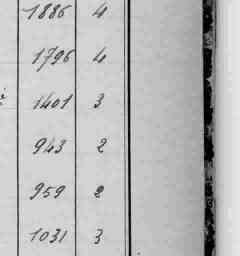 1886 4
1796 4
1401 3
943 2
959 2
1031 3